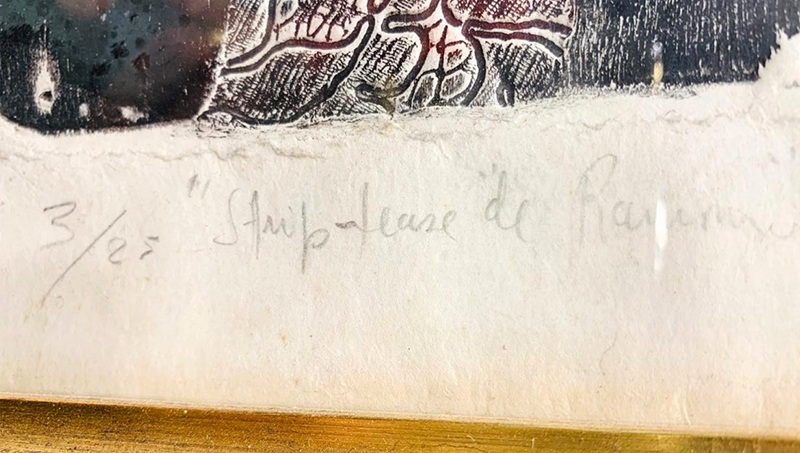 3/25 "Strip-tease" de